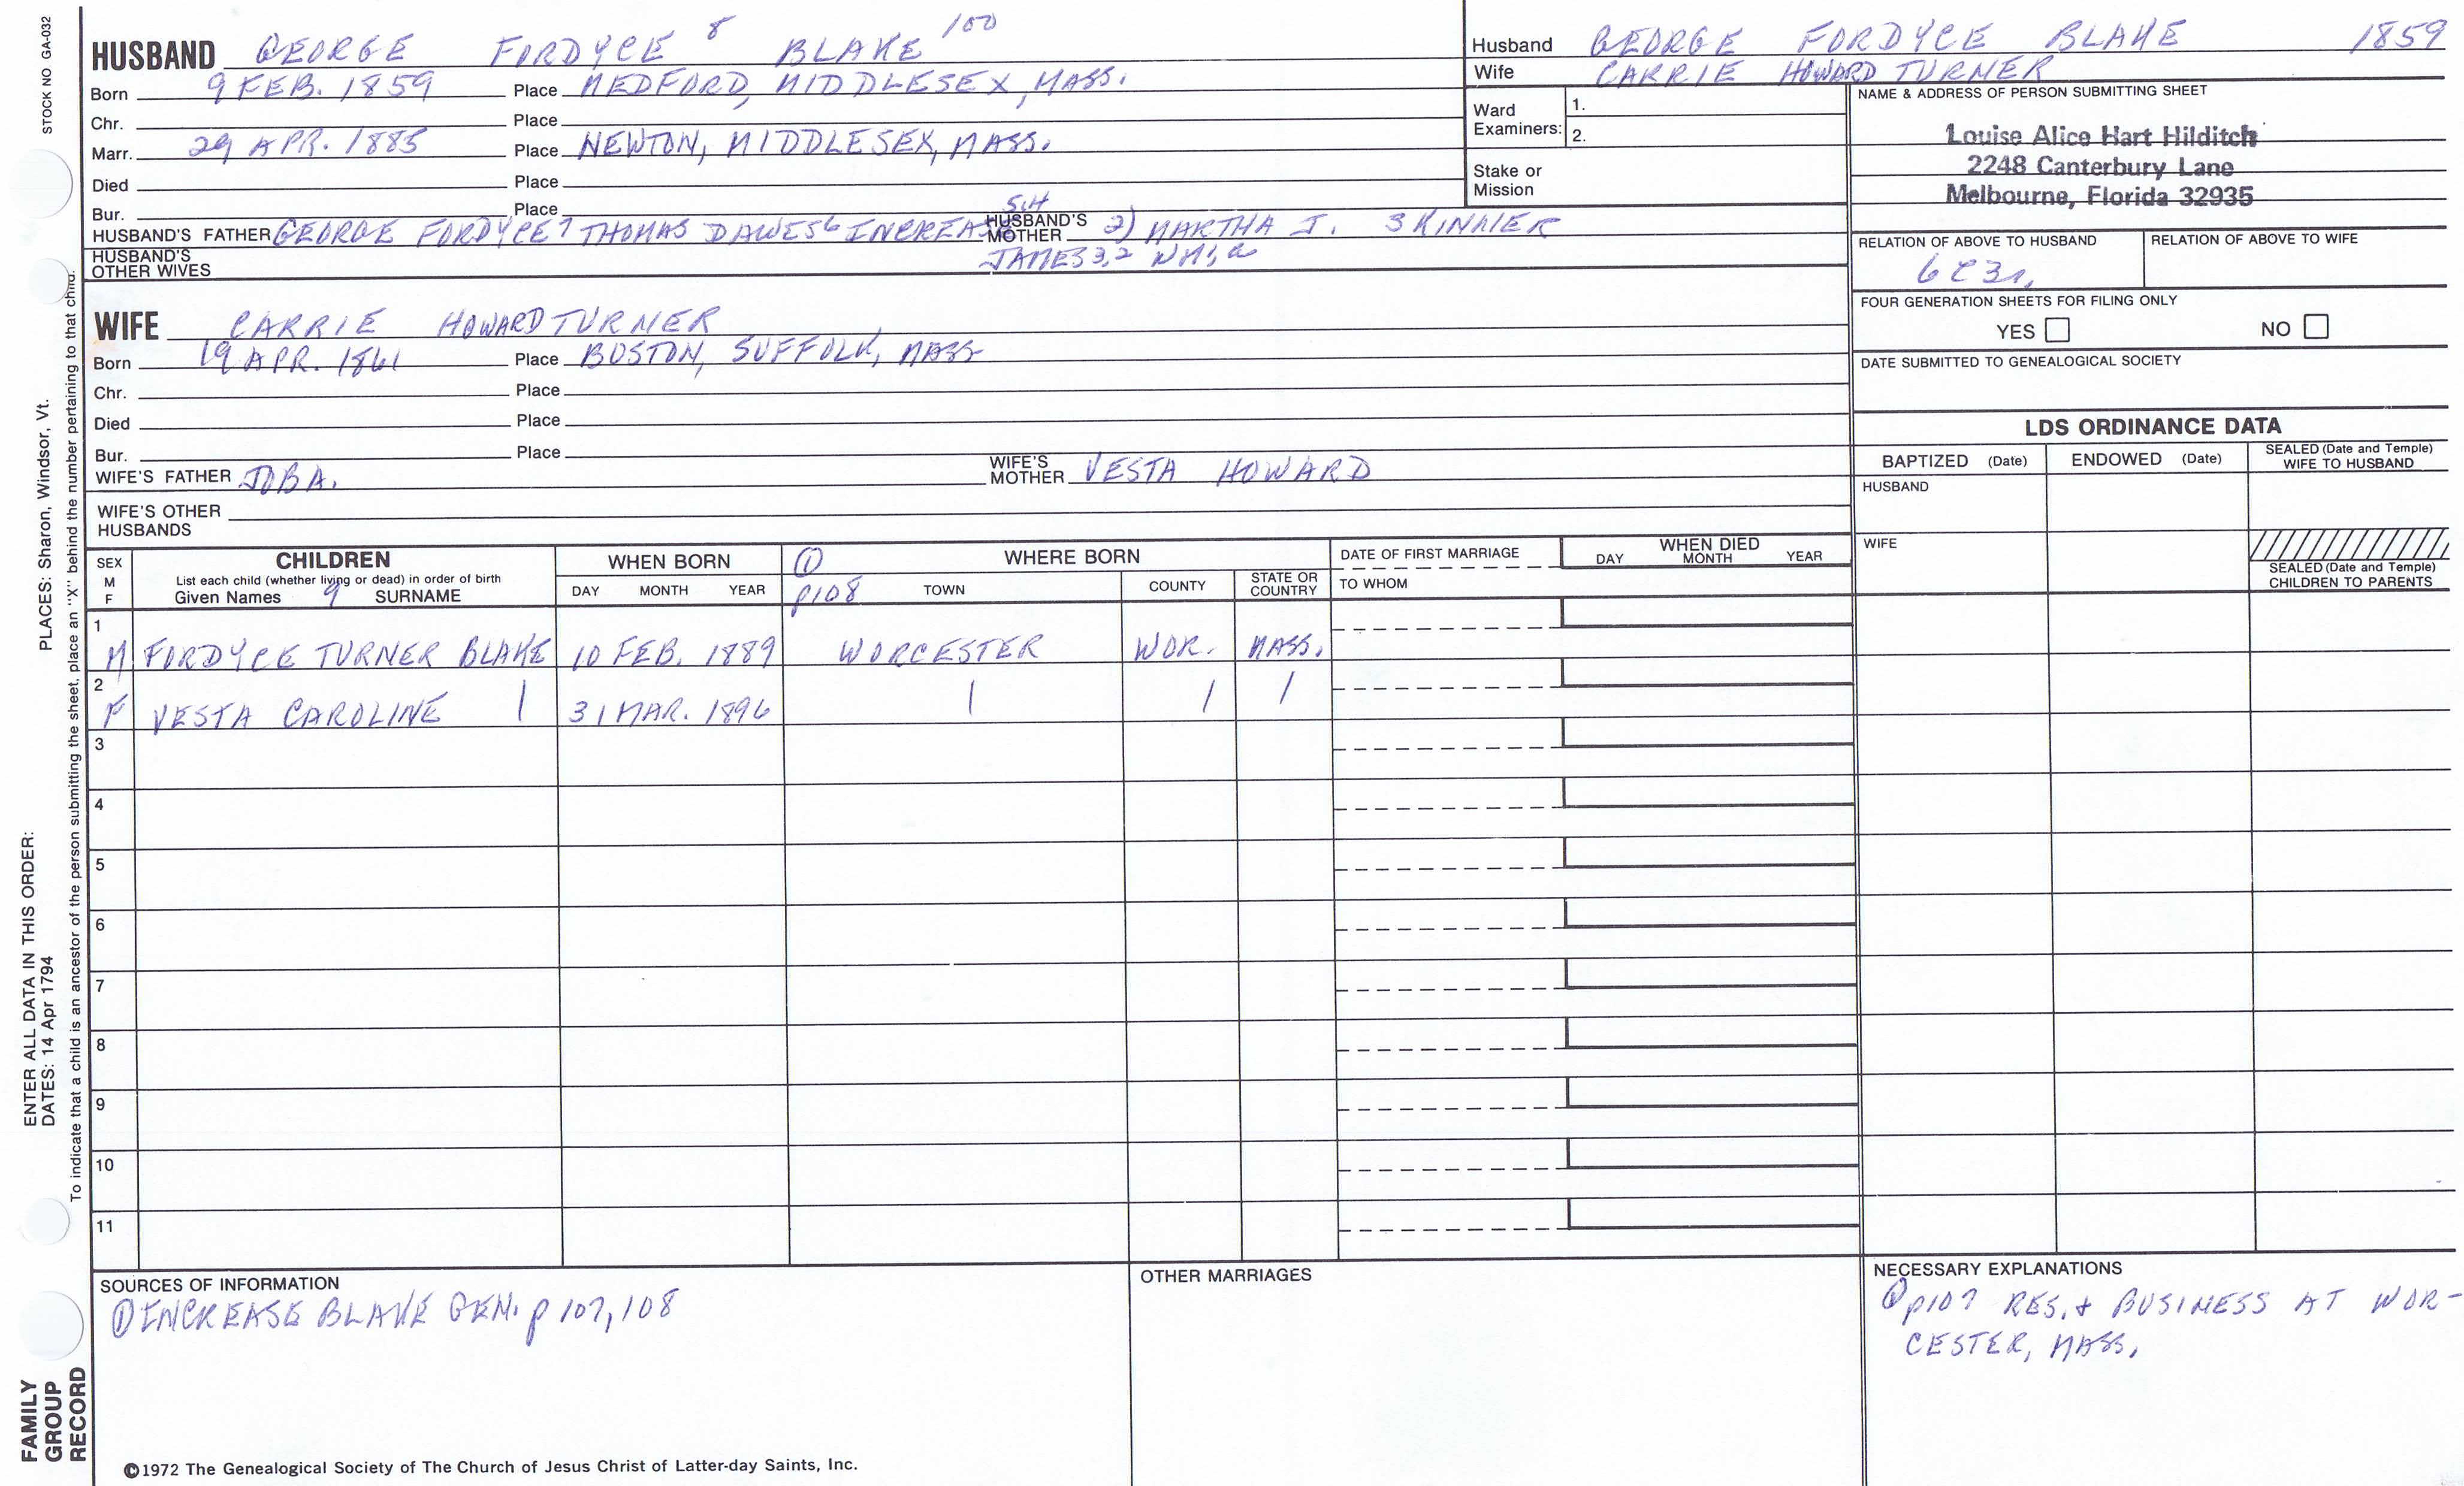 STOCK NO GA-032
HUSBAND GEORGE FORDYCE 8 BLAKE 100
Born 9 FEB. 1859 Place MEDFORD, MIDDLESEX, MASS.
Chr. Place
Marr. 29 APR. 1885 Place NEWTON, MIDDLESEX, MASS.
Died Place
Bur. Place
HUSBAND'S FATHER GEORGE FORDYCE 7 THOMAS DAWES 6 INCREASE 5,4 HUSBAND'S MOTHER 2) MARTHA J. SKINNER
JAMES 3,2 WM 1, a
HUSBAND'S OTHER WIVES
WIFE CARRIE HOWARD TURNER
Born 19 APR. 1861 Place BOSTON, SUFFOLK, MASS
Chr. Place
Died Place
Bur. Place
WIFE'S FATHER JOB A. WIFE'S MOTHER VESTA HOWARD
WIFE'S OTHER HUSBANDS
Husband GEORGE FORDYCE BLAKE 1859
Wife CARRIE HOWARD TURNER
Ward Examiners: 1.
2.
Stake or Mission
NAME & ADDRESS OF PERSON SUBMITTING SHEET
Louise Alice Hart Hilditch
2248 Canterbury Lane
Melbourne, Florida 32935
RELATION OF ABOVE TO HUSBAND RELATION OF ABOVE TO WIFE
6C3r.
FOUR GENERATION SHEETS FOR FILING ONLY
YES NO
DATE SUBMITTED TO GENEALOGICAL SOCIETY
LDS ORDINANCE DATA
BAPTIZED (Date) ENDOWED (Date) SEALED (Date and Temple) WIFE TO HUSBAND
HUSBAND
WIFE
SEALED (Date and Temple) CHILDREN TO PARENTS
SEX M F CHILDREN
List each child (whether living or dead) in order of birth
Given Names 9 SURNAME
WHEN BORN
DAY MONTH YEAR
① p108 WHERE BORN
TOWN COUNTY STATE OR COUNTRY
DATE OF FIRST MARRIAGE
TO WHOM
WHEN DIED
DAY MONTH YEAR
1 M FORDYCE TURNER BLAKE 10 FEB. 1889 WORCESTER WOR. MASS.
2 F VESTA CAROLINE | 31 MAR. 1896 | | |
3
4
5
6
7
8
9
10
11
SOURCES OF INFORMATION
① INCREASE BLAKE GEN. p 107, 108
OTHER MARRIAGES
NECESSARY EXPLANATIONS
① p107 RES. & BUSINESS AT WOR-
CESTER, MASS.
©1972 The Genealogical Society of The Church of Jesus Christ of Latter-day Saints, Inc.
FAMILY GROUP RECORD
ENTER ALL DATA IN THIS ORDER:
DATES: 14 Apr 1794
PLACES: Sharon, Windsor, Vt.
To indicate that a child is an ancestor of the person submitting the sheet, place an "X" behind the number pertaining to that child.